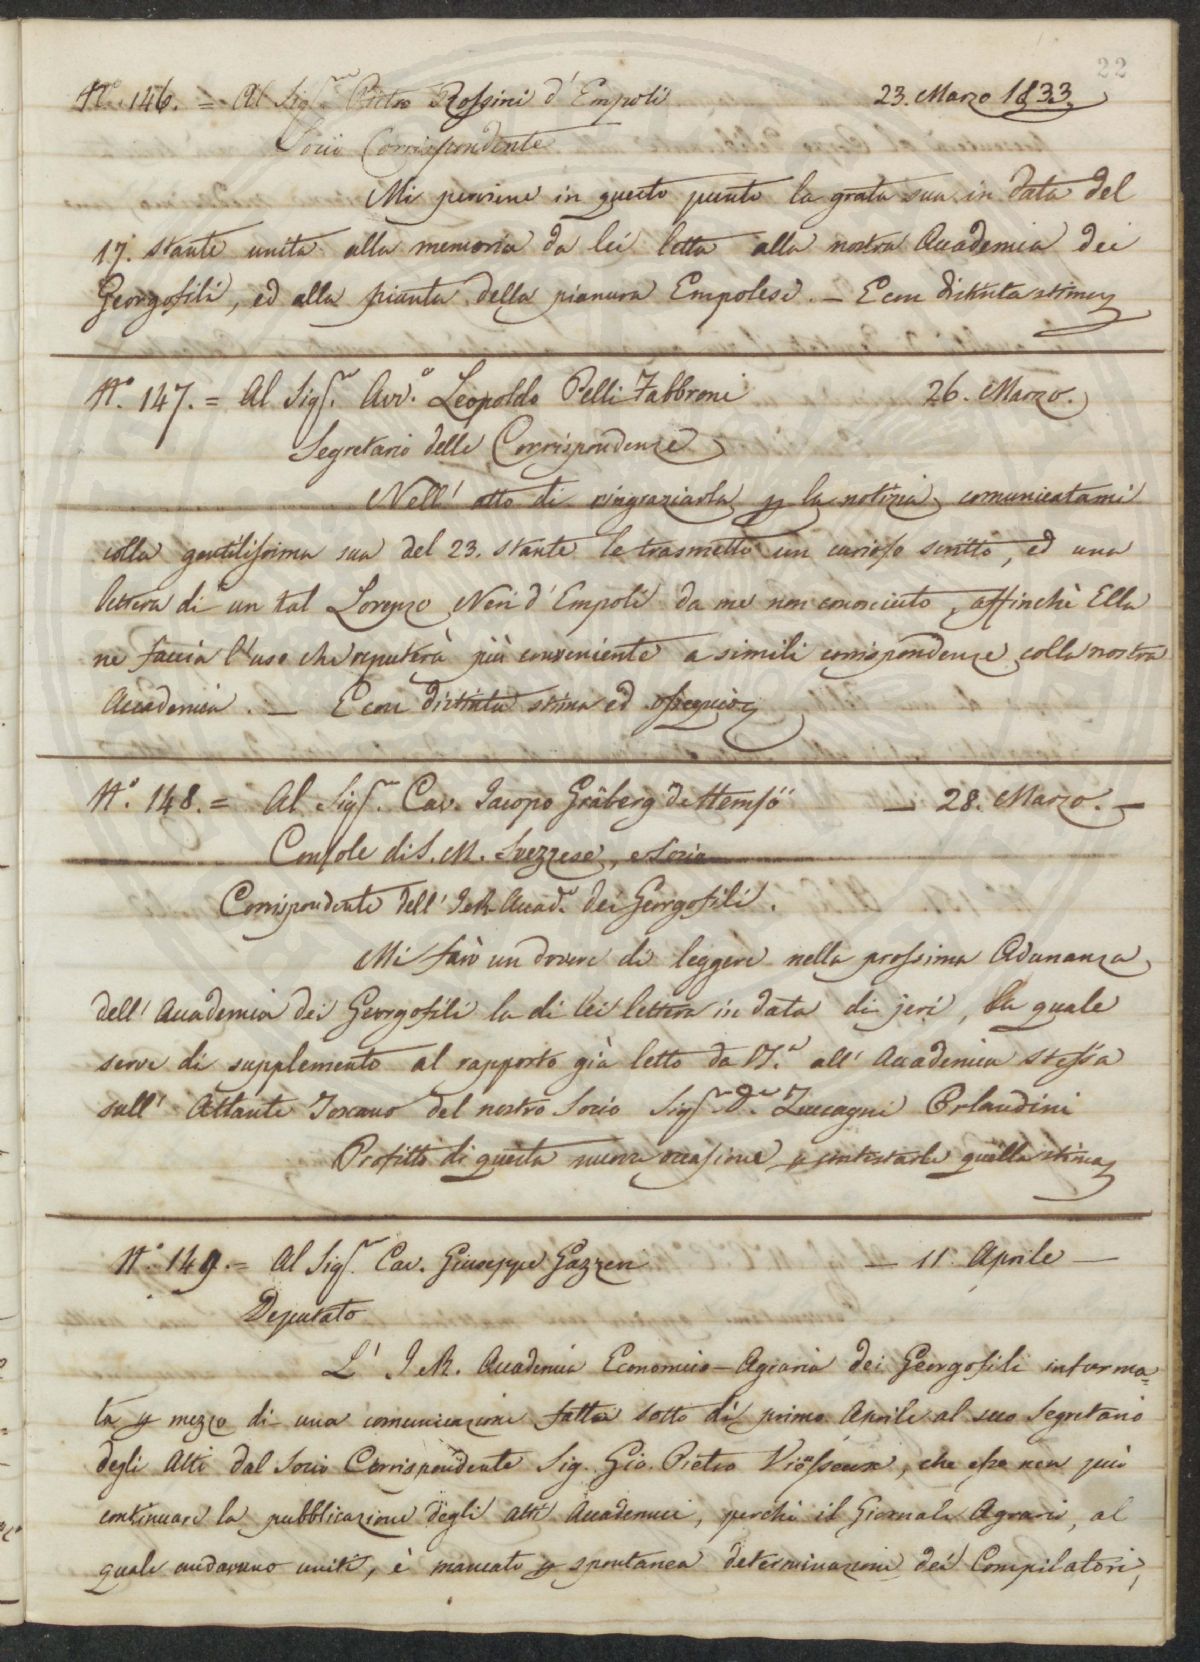 22
N.° 146. = Al Sig.r Pietro Rossini d'Empoli 23. Marzo 1833.
Socio Corrispondente
Mi perviene in questo punto la grata sua in data del
17. stante unita alla memoria da lei letta alla nostra Accademia dei
Georgofili, ed alla pianta della pianura Empolese. — E con distinta stima
N.° 147. = Al Sig.r Avv.o Leopoldo Pelli Fabbroni 26. Marzo.
Segretario delle Corrispondenze
Nell' atto di ringraziarla p la notizia comunicatami
colla gentilissima sua del 23. stante le trasmetto un curioso scritto, ed una
lettera di un tal Lorenzo Neri d'Empoli da me non conosciuto, affinchè Ella
ne faccia l'uso che reputerà più conveniente a simili corrispondenze colla nostra
Accademia. — E con distinta stima ed ossequio
N.° 148. = Al Sig.r Cav. Jacopo Gräberg de Hemsö — 28. Marzo. —
Console di S. M. Svezzese, e Socio
Corrispondente dell' I e R Accad.a dei Georgofili.
Mi farò un dovere di leggere nella prossima Adunanza
dell' Accademia dei Georgofili la di lei lettera in data di jeri, la quale
serve di supplemento al rapporto già letto da V.S. all' Accademia stessa
sull' Atlante Toscano del nostro Socio Sig.r D.re Zuccagni Orlandini
Profitto di questa nuova occasione p contestarle quella stima
N.° 149. = Al Sig.r Cav. Giuseppe Gazzeri — 11 Aprile —
Deputato
L' I e R. Accademia Economico-Agraria dei Georgofili informa=
ta p mezzo di una comunicazione fatta sotto dì primo Aprile al suo Segretario
degli Atti dal Socio Corrispondente Sig. Gio. Pietro Viësseux, che esso non può
continuare la pubblicazione degli atti Accademici, perchè il Giornale Agrario, al
quale andavano uniti, è mancato p spontanea determinazione dei Compilatori,